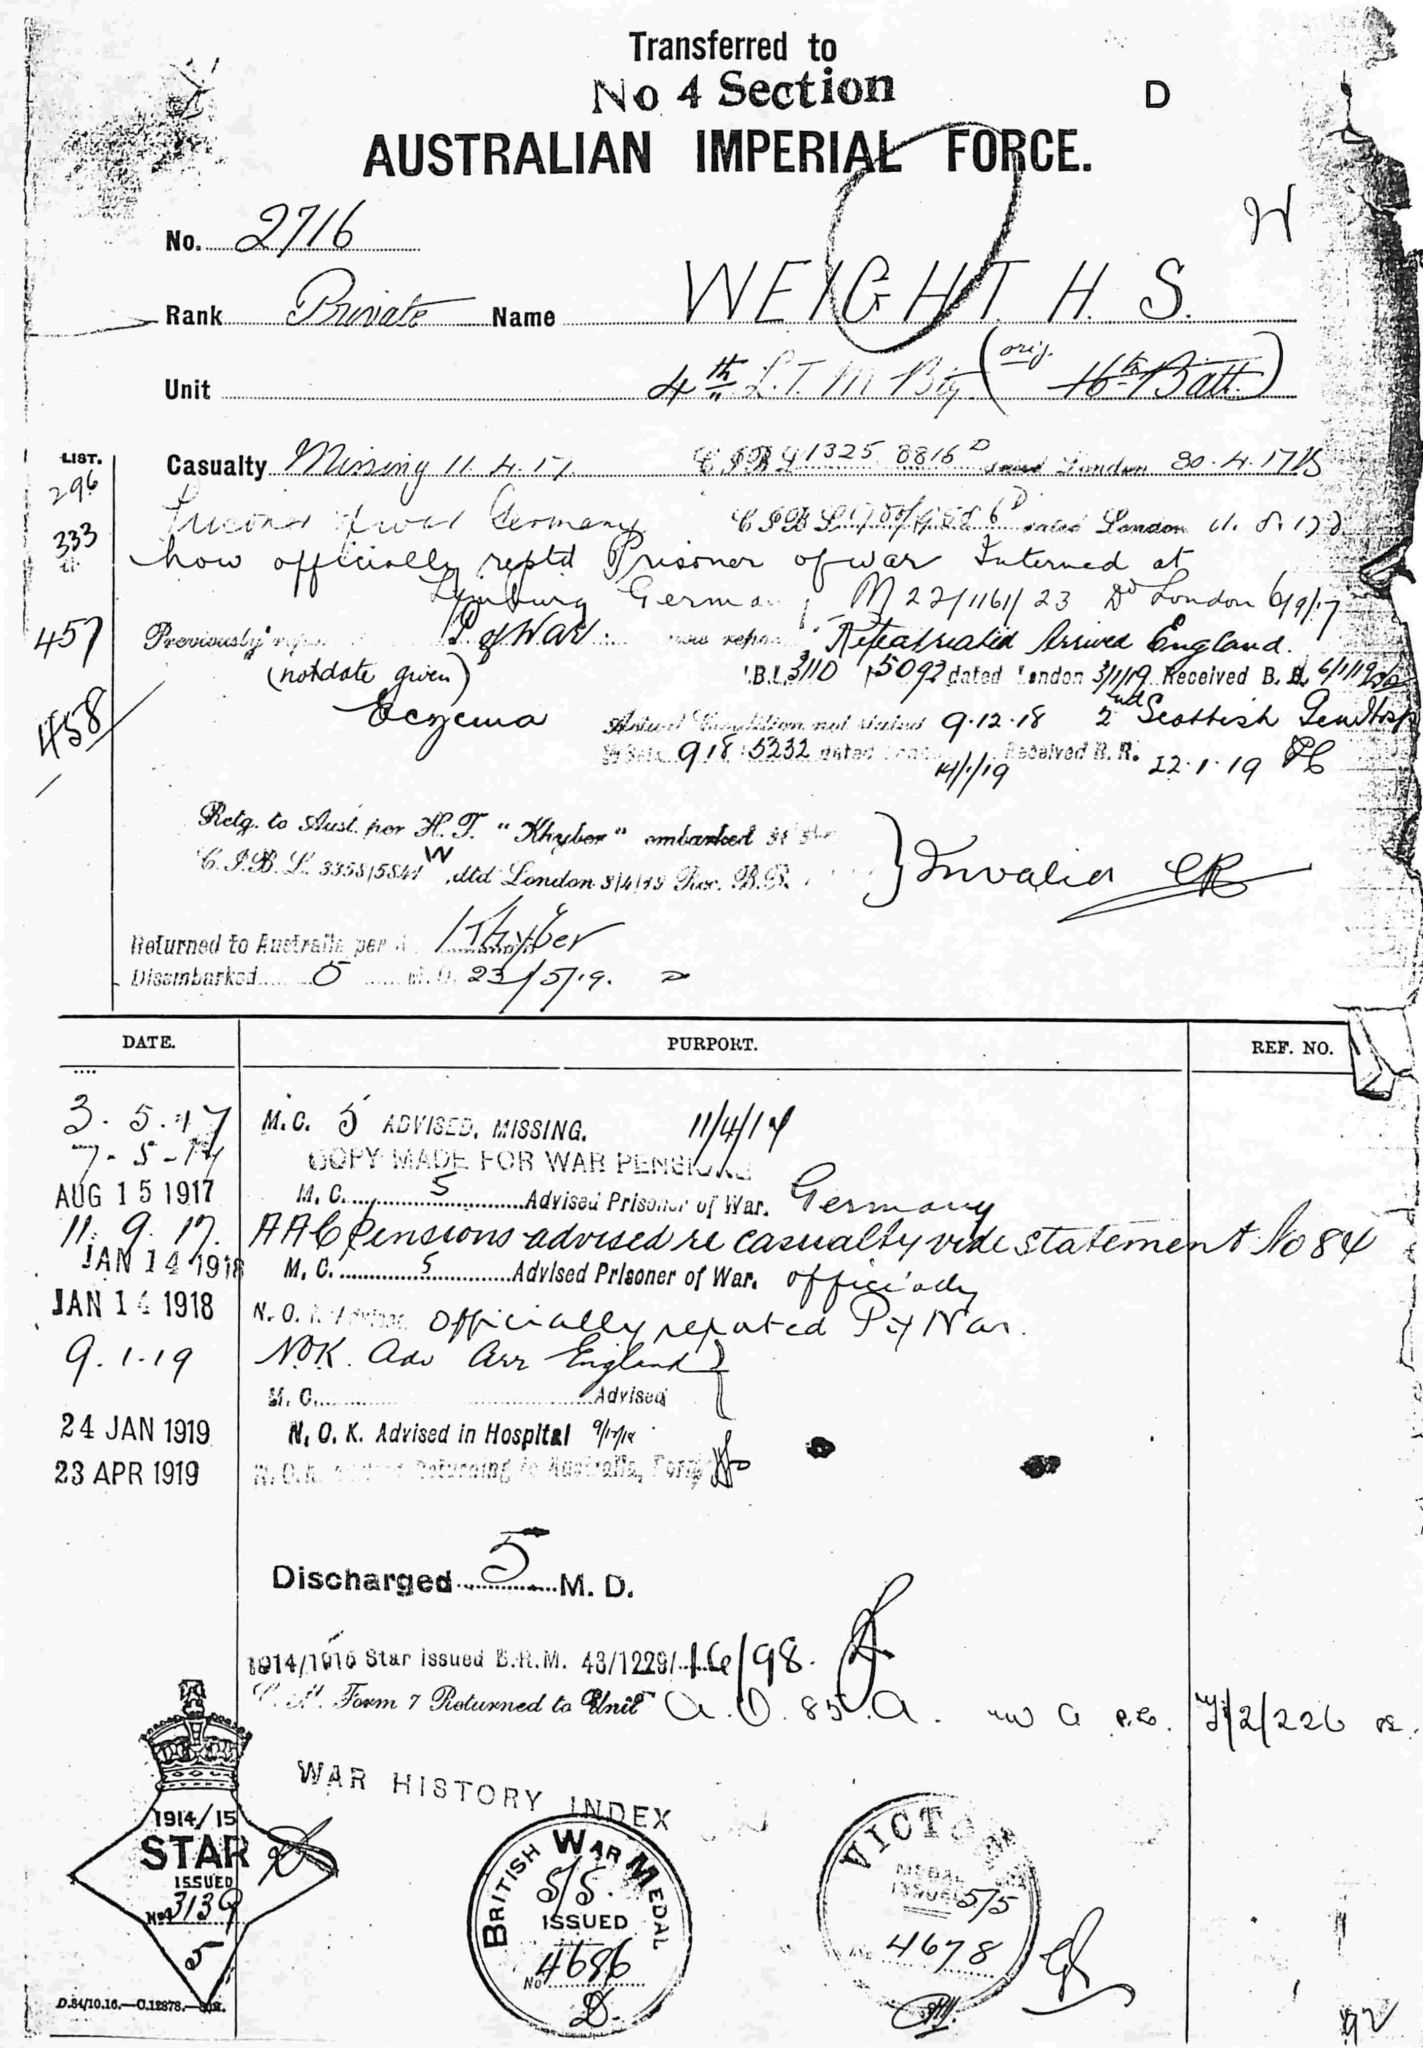 Transferred to
No 4 Section
D
AUSTRALIAN IMPERIAL FORCE.
W
No. 2716
Rank Private Name WEIGHT. H. S.
Unit 4th L. T. M. Bty (orig. 16th Batt.)
LIST.
296
Casualty Missing 11.4.17 dated London 30.4.17
333
Prisoner of war Germany dated London
now officially reptd Prisoner of war Interned at
Germa M 22/1161/23 Dd London 6/9/17
457
Previously repo P of War. now repo Repatriated Arrived England.
(not date given) 3110 5092 dated London 3/1/19 Received B. R. 6/1/19
458
Eczema Actual Condition not stated 9.12.18 2nd Scottish Gen Hosp
918 5232 dated 14/1/19 Received B. R. 22.1.19
Retg. to Aust. per H. T. "Khyber" embarked
C. I. B. L. 3358/5841 W dtd London 8/4/19 Rec. B.R.
} Invalid
Returned to Australia per Khyber
Disembarked 5 M. D. 23/5/19.
DATE. PURPORT. REF. NO.
3.5.17 M.C. 5 ADVISED, MISSING. 11/4/17
7-5-17 COPY MADE FOR WAR PENSIONS
AUG 15 1917 M. C. 5 Advised Prisoner of War. Germany
11. 9. 17. AAG Pensions advised re casualty vide statement No 84
JAN 14 1918 M. C. 5 Advised Prisoner of War. officially
JAN 14 1918 N. O. K. Advised officially reported P of War.
9.1.19 N.O.K. Adv Arr England }
M. C. Advised
24 JAN 1919 N. O. K. Advised in Hospital 9/12/18
23 APR 1919 N. O. K. Advised Returning to Australia, Form
Discharged 5 M. D.
1914/1915 Star issued B.R.M. 43/1229/16/98.
Form 7 Returned to Unit A. O. 85. A. 2/226
WAR HISTORY INDEX
1914/15
STAR
ISSUED
No. 3139
5
BRITISH WAR MEDAL
5/5.
ISSUED
No. 4686
D.
VICTORY
MEDAL
ISSUED 5/5
No. 4678
D.84/10.16.—C.12878.—
92